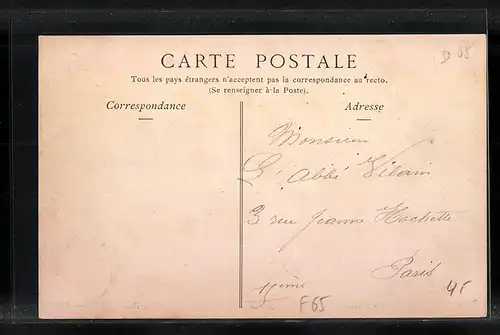 D 88
CARTE POSTALE
Tous les pays étrangers n'acceptent pas la correspondance au recto.
(Se renseigner à la Poste).
Correspondance
Adresse
Monsieur
L'Abbé Vilain
3 rue Jeanne Hachette
Paris
15ème
F65